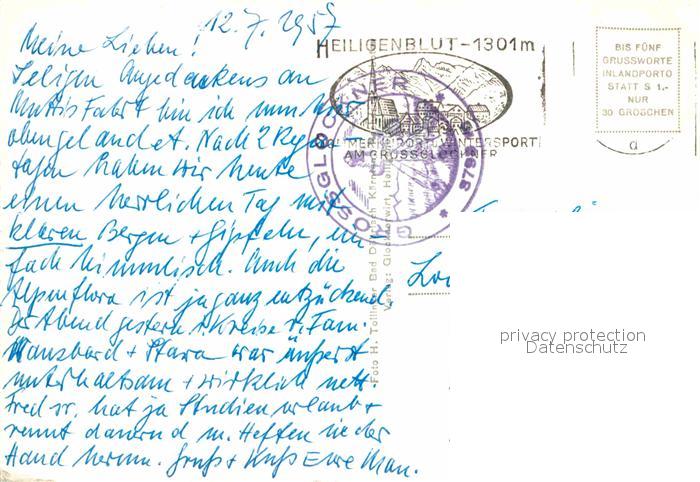 12.7.1957
Meine Lieben!
Seligen Angedenkens an
Muttis Fahrt bin ich nun hier
oben gelandet. Nach 2 Regen
tagen haben wir heute
einen herrlichen Tag mit
klaren Bergen + Gipfeln, ein
fach himmlisch. Auch die
Alpenflora ist ja ganz entzückend.
Der Abend gestern i. Kreise v. Fam.
+ war äußerst
unterhaltsam + wirklich nett.
Fred hat ja Studienurlaub +
rennt dauernd m. Heften in der
Hand herum. Gruß + Kuß Eure
HEILIGENBLUT-1301m
SOMMERKURORT U. WINTERSPORT
AM GROSSGLOCKNER
GROSSGLOCKNER * 3798 m *
BIS FÜNF
GRUSSWORTE
INLANDPORTO
STATT S 1,-
NUR
30 GROSCHEN
a
Foto H. Tollinger Bad
Verlag: Glocknerwirt, Heil
privacy protection
Datenschutz